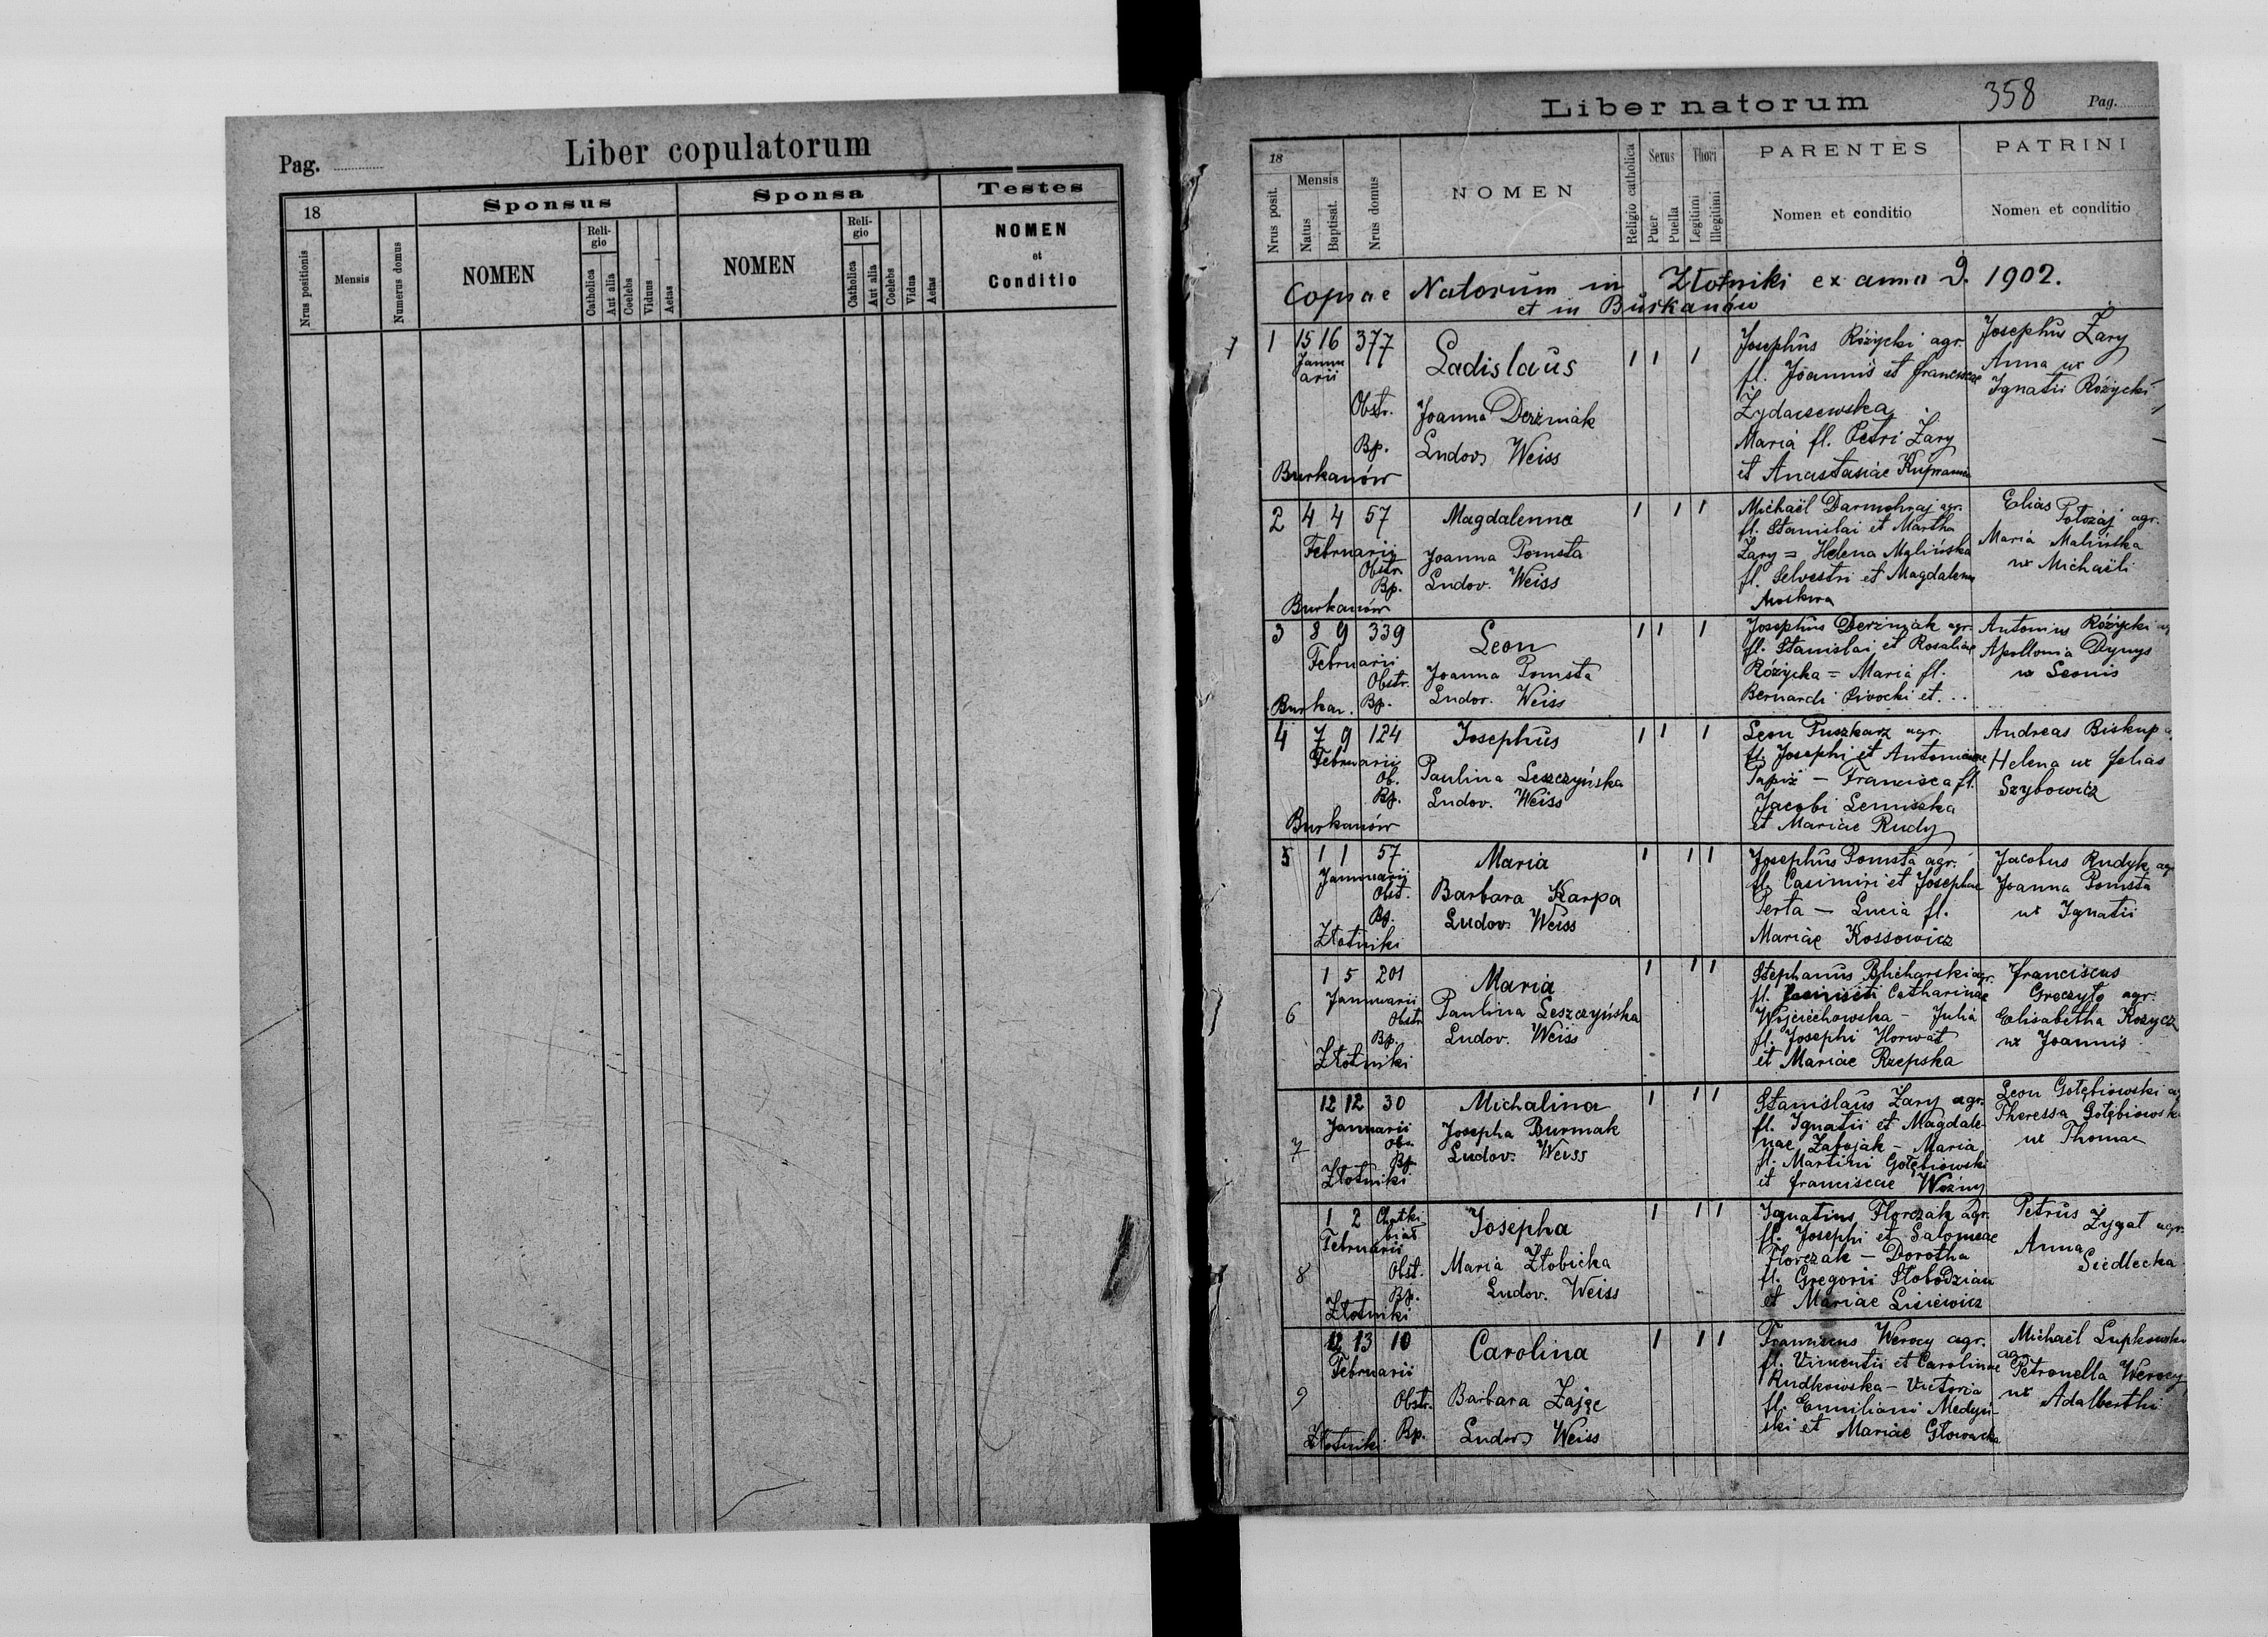 Pag.
Liber copulatorum
18
Sponsus
Sponsa
Testes
Nrus positionis
Mensis
Numerus domus
NOMEN
Religio
Catholica
Aut alia
Coelebs
Viduus
Aetas
NOMEN
Religio
Catholica
Aut alia
Coelebs
Vidua
Aetas
NOMEN
et
Conditio
Liber natorum
358
Pag.
18
Nrus posit.
Mensis
Natus
Baptisat.
Nrus domus
NOMEN
Religio catholica
Sexus
Puer
Puella
Thori
Legitimi
Illegitimi
PARENTES
Nomen et conditio
PATRINI
Nomen et conditio
Copiae Natorum in Złotniki ex anno D. 1902.
et in Burkanów
1 15 16 377
Januarii
Ladislaus
1 1 1
Obstr. Joanna Derżniak
Bp. Ludov. Weiss
Burkanów
Josephus Różycki agr.
fl. Joannis et Franciscae
Żydaczewska
Maria fl. Petri Żary
et Anastasiae
Josephus Żary
Anna ux
Ignatii Różycki
2 4 4 57
Februarii
Magdalenna
1 1 1
Obstr. Joanna Pomsta
Bp. Ludov. Weiss
Burkanów
Michaël Darmohraj agr.
fl. Stanislai et Martha
Żary = Helena Malińska
fl. Selvestri et Magdalena
Moskwa
Elias
Potozaj agr.
Maria Malińska
ux Michaëli
3 8 9 339
Februarii
Leon
1 1 1
Obstr. Joanna Pomsta
Burkan. Bp. Ludov. Weiss
Josephus Derżniak agr.
fl. Stanislai et Rosaliae
Różycka = Maria fl.
Bernardi Piwocki et ...
Antonius Różycki
Apollonia Dymys
ux Leonis
4 7 9 124
Februarii
Josephus
1 1 1
Ob. Paulina Leszczyńska
Bp. Ludov. Weiss
Burkanów
Leon Puszkarz agr.
fl. Josephi et Antoninae
Papiż - Francisca fl.
Jacobi Lemiszka
et Mariae Rudy
Andreas Biskup
Helena ux
Szybowicz
5 1 1 57
Januarii
Maria
1 1 1
Obst. Barbara Karpa
Bp. Ludov. Weiss
Złotniki
Josephus Pomsta agr.
fl. Casimiri et Josephae
Perta - Lucia fl.
Mariae Kossowicz
Jacobus Rudyk agr
Joanna Pomsta
ux Ignatii
6 1 5 201
Januarii
Maria
1 1 1
Obstr Paulina Leszczyńska
Bp. Ludov. Weiss
Złotniki
Stephanus Blicharski agr.
fl. Catharinae
Wojciechowska - Julia
fl. Josephi Horwat
et Mariae Rzepska
Franciscus
Greczyło agr.
Elisabetha
ux Joannis
7 12 12 30
Januarii
Michalina
1 1 1
Obs. Josepha Burmak
Bp. Ludov. Weiss
Złotniki
Stanislaus Żary agr.
fl. Ignatii et Magdale-
nae Zabojak - Maria
fl. Martini Gołębiowski
et Franciscae Woźny
Leon Gołębiowski
Theressa Gołębiowsk
ux Thomae
8 1 2
Februarii
Josepha
1 1 1
Obst. Maria Złobicka
Bp. Ludov. Weiss
Złotniki
Ignatius Florczak agr.
fl. Josephi et Salomeae
Florczak - Dorotha
fl. Gregorii Słobodzian
et Mariae Lisiewicz
Petrus
Zygat agr.
Anna
Siedlecka
9 12 13 10
Februarii
Carolina
1 1 1
Obstr. Barbara Zając
Bp. Ludov. Weiss
Złotniki
Franciscus Werocy agr.
fl. Vincentii et Carolinae
Rudkowska - Victoria
fl. Emiliani Medyń-
ski et Mariae Głowacka
Michaël Łupkowski
agr.
Petronella Werocy
ux Adalberthi